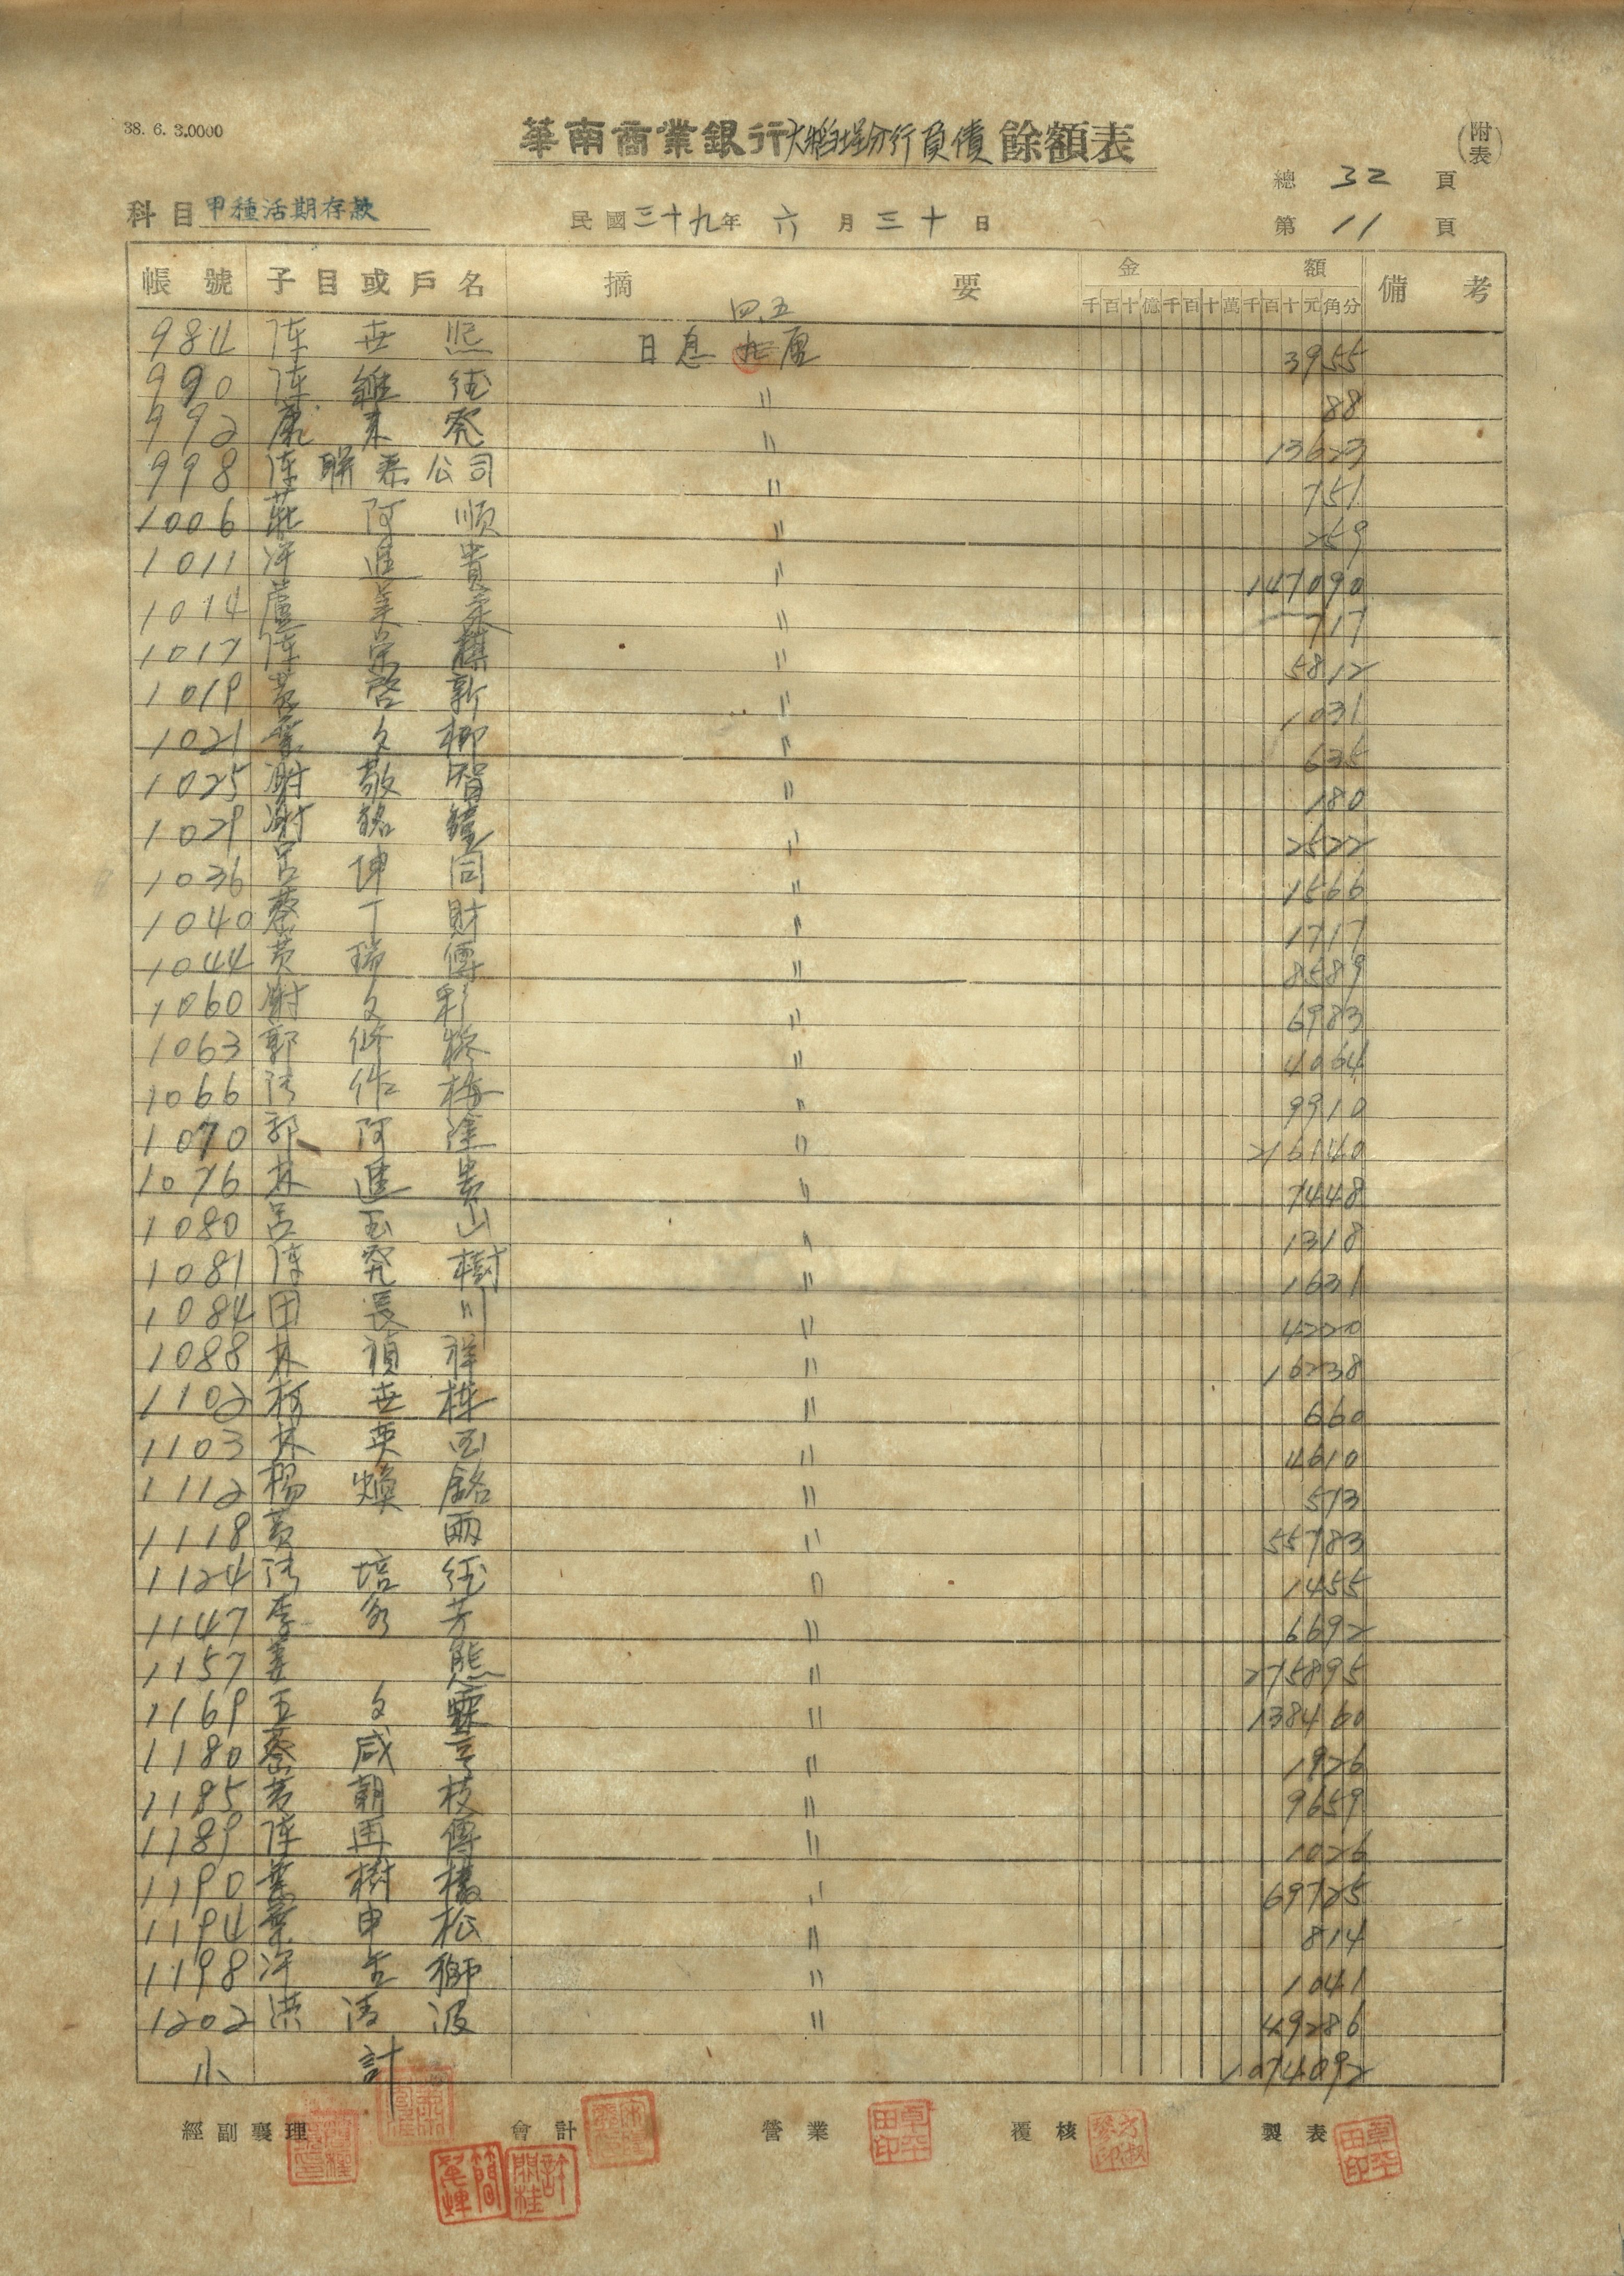 38. 6. 3.0000
華南商業銀行大稻埕分行負債餘額表
(附表)
總 32 頁
科目 甲種活期存款 民國三十九年 六 月 三十 日 第 11 頁
帳號 子目或戶名 摘要 金額 備考
千百十億千百十萬千百十元角分
四.五
984 陳世熙 日息 厘 3955
990 陳維德 〃 88
992 康来発 〃 13623
998 陳聯泰公司 〃 751
1006 莊阿順 〃 259
1011 許進貴 〃 147090
1014 蘆美 〃 717
1017 陳宗麒 〃 5812
1019 黃啓新 〃 1031
1021 葉文柳 〃 635
1025 謝敬智 〃 180
1029 謝銘鐘 〃 2522
1036 呂坤同 〃 1566
1040 蔡丁財 〃 1717
1044 黃瑞傳 〃 8589
1060 謝文彩 〃 6983
1063 郭修 〃 4064
1066 作梅 〃 9910
1070 郭阿塗 〃 216140
1076 林進貴 〃 7448
1080 呂玉山 〃 1318
1081 陳発樹 〃 1631
1084 田長川 〃 4220
1088 林禎祥 〃 10238
1102 柯世 〃 660
1103 林英 〃 4610
1112 楊煥銘 〃 573
1118 黃兩 〃 55783
1124 培德 〃 1455
1147 李芳 〃 6692
1157 姜熊 〃 275895
1169 王文霖 〃 138460
1180 蔡咸亨 〃 1926
1185 朝枝 〃 9659
1189 陳再傳 〃 1026
1190 葉樹 〃 69725
1194 葉申松 〃 814
1198 許吉獅 〃 1041
1202 洪清波 〃 49286
小計 1074092
經副襄理 會計 營業 覆核 製表
簡 許 卓 田印 卓 田印